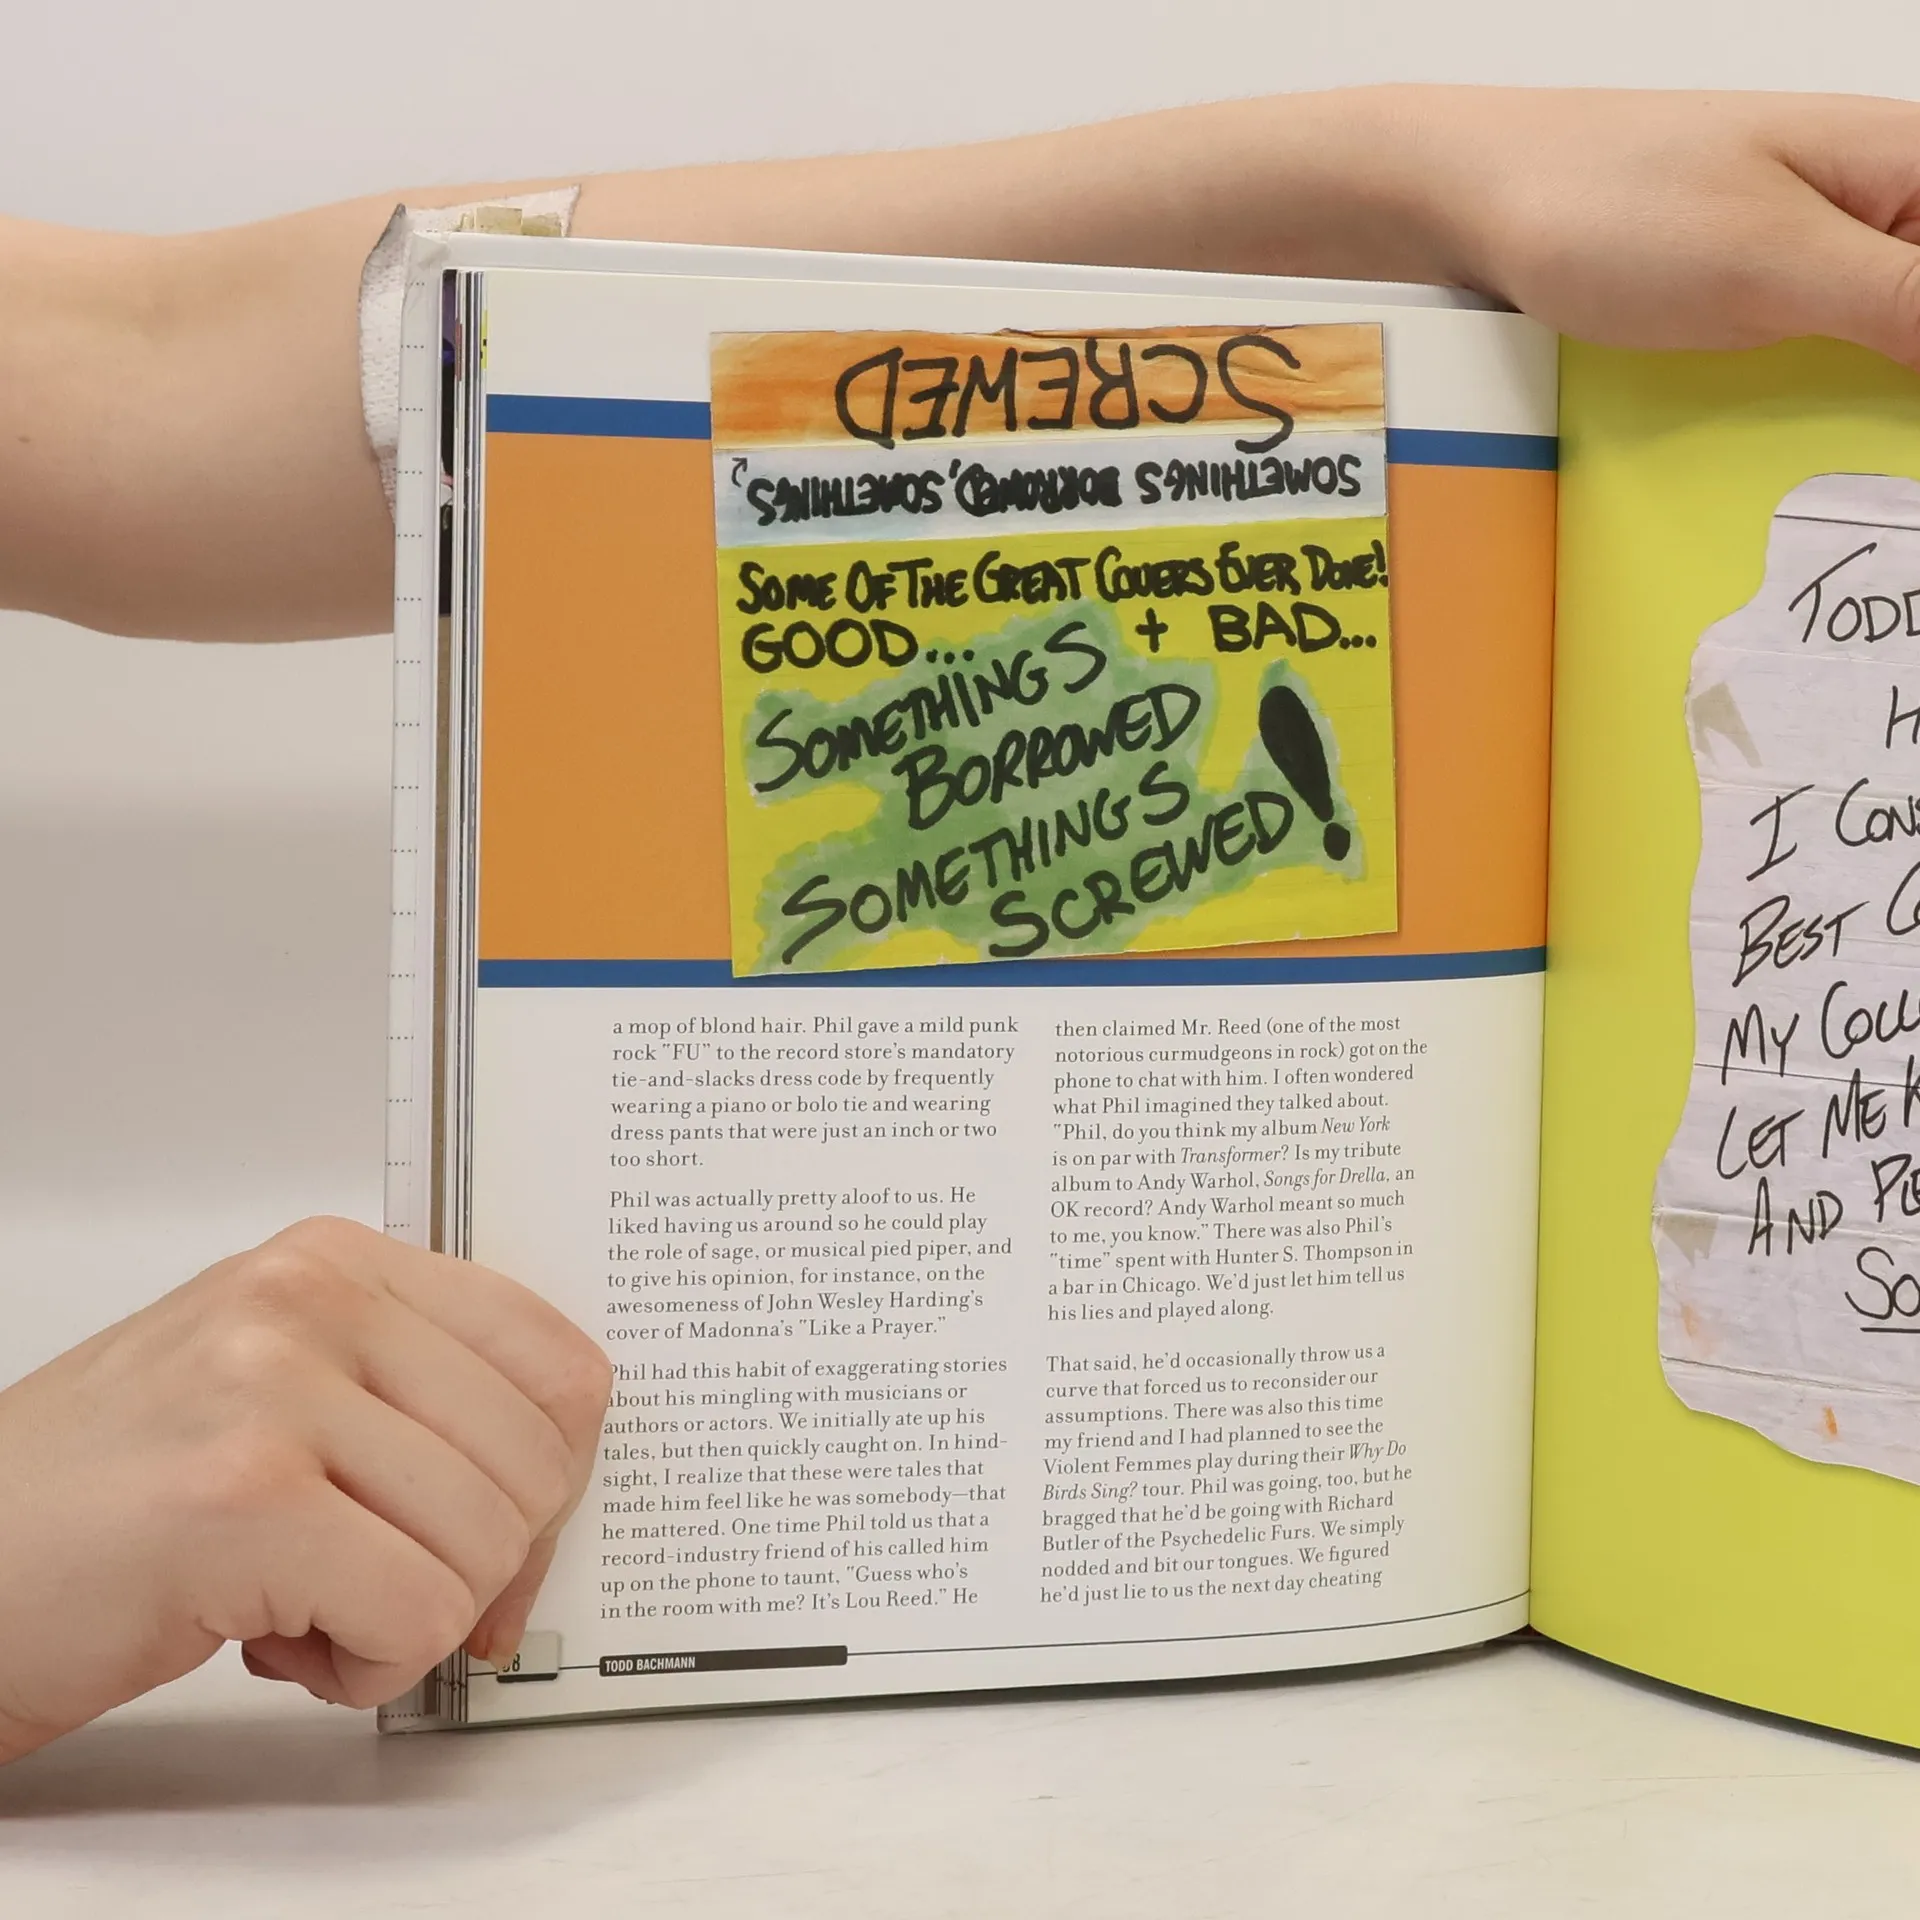 SCREWED
SOMETHINGS BORROWED, SOMETHINGS
SOME OF THE GREAT COVERS EVER DONE!
GOOD... + BAD...
SOMETHINGS
BORROWED
SOMETHINGS
SCREWED!
a mop of blond hair. Phil gave a mild punk
rock "FU" to the record store's mandatory
tie-and-slacks dress code by frequently
wearing a piano or bolo tie and wearing
dress pants that were just an inch or two
too short.
Phil was actually pretty aloof to us. He
liked having us around so he could play
the role of sage, or musical pied piper, and
to give his opinion, for instance, on the
awesomeness of John Wesley Harding's
cover of Madonna's "Like a Prayer."
Phil had this habit of exaggerating stories
about his mingling with musicians or
authors or actors. We initially ate up his
tales, but then quickly caught on. In hind-
sight, I realize that these were tales that
made him feel like he was somebody—that
he mattered. One time Phil told us that a
record-industry friend of his called him
up on the phone to taunt, "Guess who's
in the room with me? It's Lou Reed." He
then claimed Mr. Reed (one of the most
notorious curmudgeons in rock) got on the
phone to chat with him. I often wondered
what Phil imagined they talked about.
"Phil, do you think my album New York
is on par with Transformer? Is my tribute
album to Andy Warhol, Songs for Drella, an
OK record? Andy Warhol meant so much
to me, you know." There was also Phil's
"time" spent with Hunter S. Thompson in
a bar in Chicago. We'd just let him tell us
his lies and played along.
That said, he'd occasionally throw us a
curve that forced us to reconsider our
assumptions. There was also this time
my friend and I had planned to see the
Violent Femmes play during their Why Do
Birds Sing? tour. Phil was going, too, but he
bragged that he'd be going with Richard
Butler of the Psychedelic Furs. We simply
nodded and bit our tongues. We figured
he'd just lie to us the next day cheating
TODD BACHMANN
TODD
I
BEST
MY
LET ME
AND